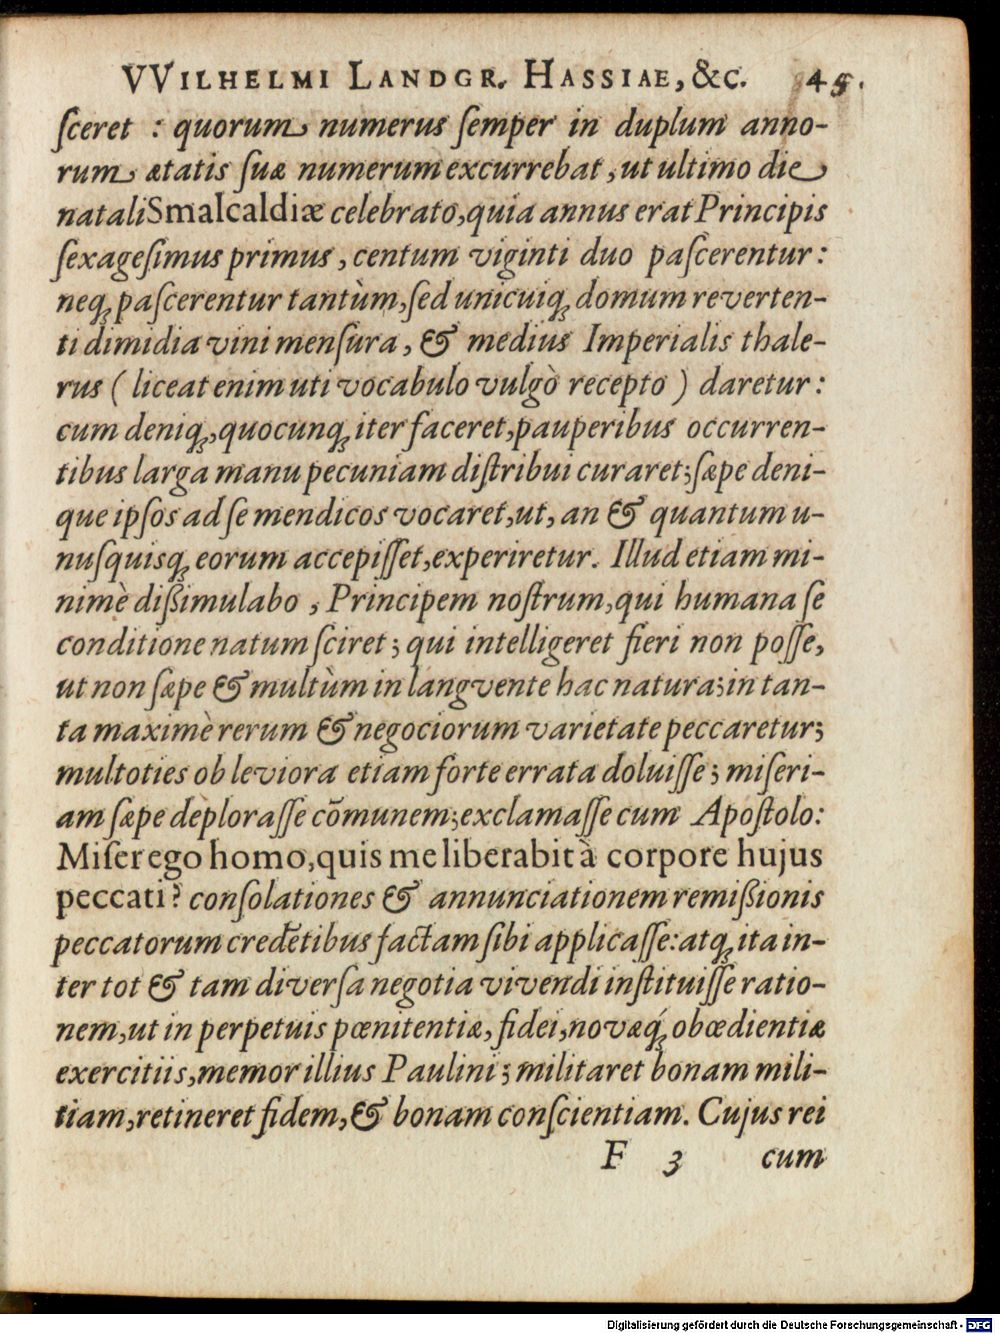 VVILHELMI LANDGR. HASSIAE, &c. 45.
ſceret : quorum numerus ſemper in duplum anno-
rum ætatis ſuæ numerum excurrebat, ut ultimo die
natali Smalcaldiæ celebrato, quia annus erat Principis
ſexageſimus primus, centum viginti duo paſcerentur:
neq́; paſcerentur tantùm, ſed unicuiq; domum reverten-
ti dimidia vini menſura, & medius Imperialis thale-
rus (liceat enim uti vocabulo vulgò recepto) daretur:
cum deniq;, quocunq; iter faceret, pauperibus occurren-
tibus larga manu pecuniam diſtribui curaret; ſæpe deni-
que ipſos ad ſe mendicos vocaret, ut, an & quantum u-
nuſquisq; eorum accepiſſet, experiretur. Illud etiam mi-
nimè dißimulabo, Principem noſtrum, qui humana ſe
conditione natum ſciret; qui intelligeret fieri non poſſe,
ut non ſæpe & multùm in langvente hac natura; in tan-
ta maximè rerum & negociorum varietate peccaretur;
multoties ob leviora etiam forte errata doluiſſe; miſeri-
am ſæpe deploraſſe cōmunem; exclamaſſe cum Apoſtolo:
Miſer ego homo, quis me liberabit à corpore hujus
peccati? conſolationes & annunciationem remißionis
peccatorum credētibus factam ſibi applicaſſe: atq; ita in-
ter tot & tam diverſa negotia vivendi inſtituiſſe ratio-
nem, ut in perpetuis pœnitentiæ, fidei, novæq́; obœdientiæ
exercitiis, memor illius Paulini; militaret bonam mili-
tiam, retineret fidem, & bonam conſcientiam. Cujus rei
F 3 cum
Digitalisierung gefördert durch die Deutsche Forschungsgemeinschaft - DFG